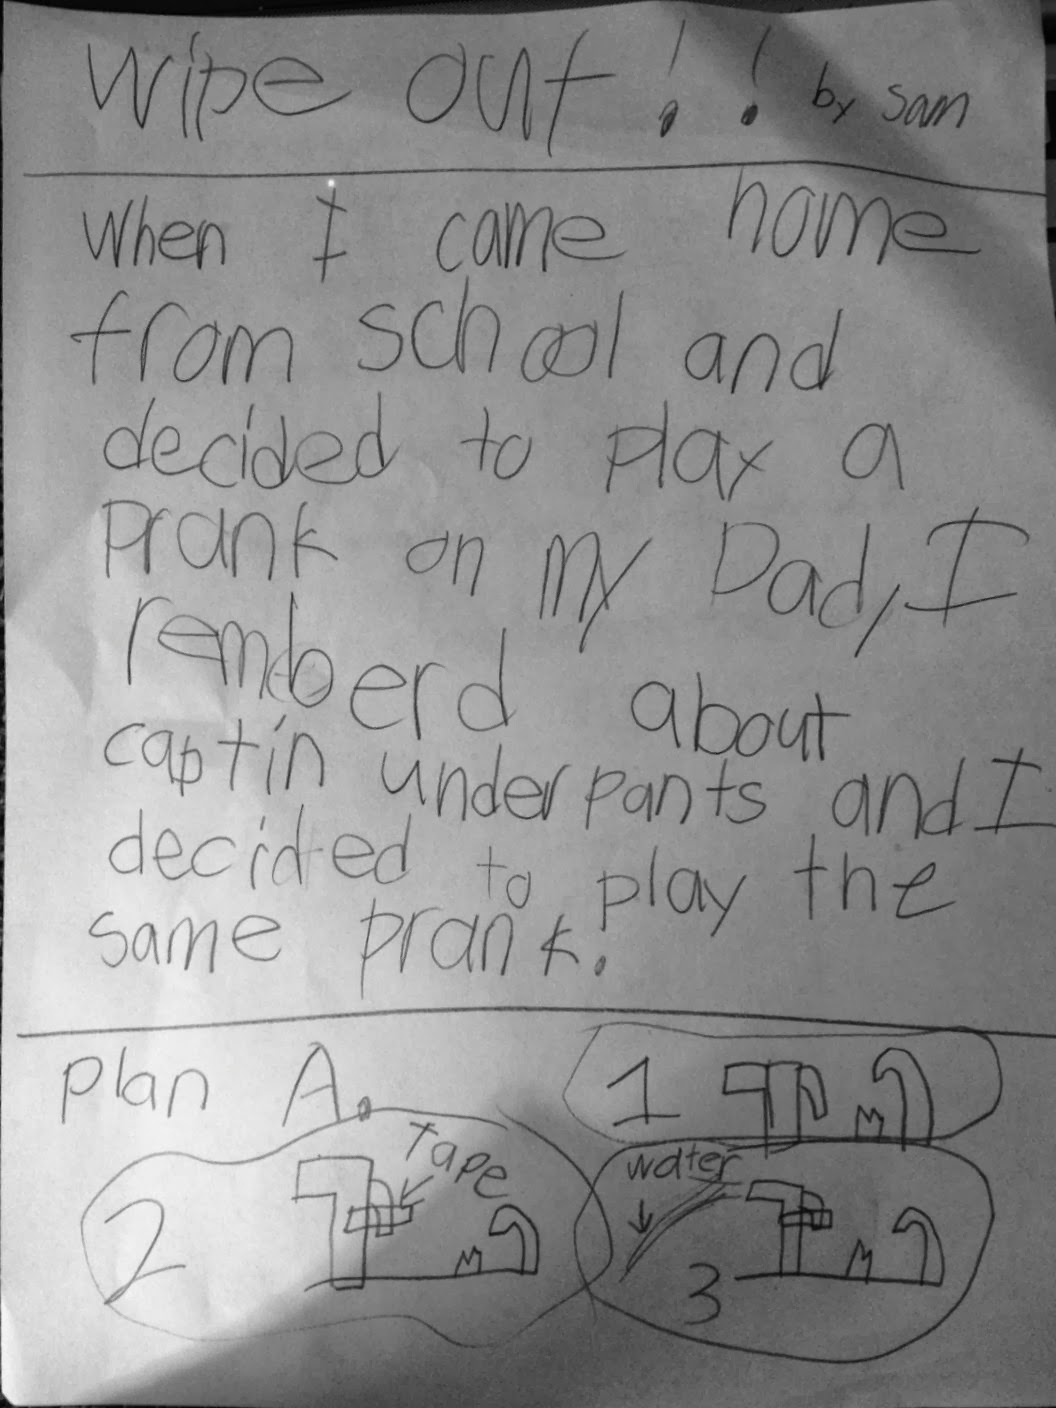 Wipe out!! by Sam
When I came home
from school and
decided to play a
prank on my Dad, I
remberd about
captin underpants and I
decided to play the
same prank.
plan A.
1
2
Tape
water
3